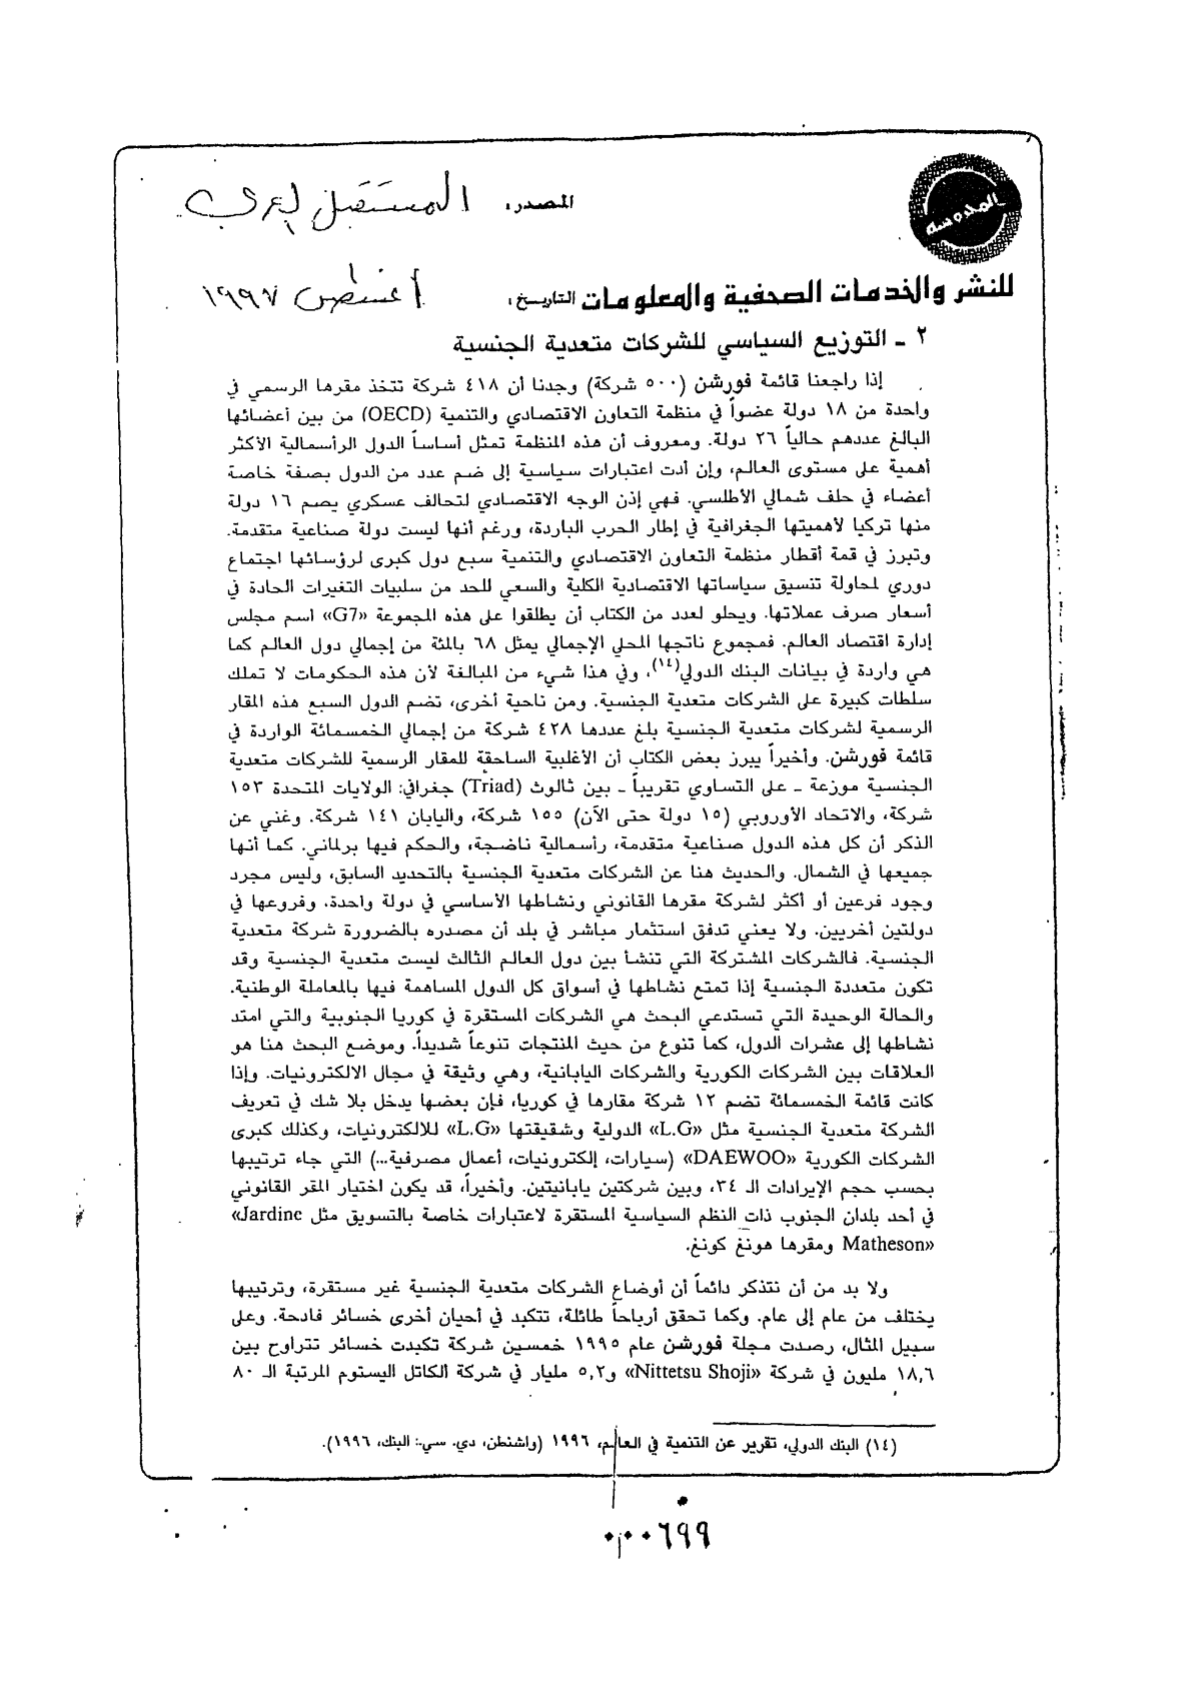 المصدر: المستقبل العربي
المدوسه
للنشر والخدمات الصحفية والمعلومات التاريخ: أغسطس ١٩٩٧
٢ ـ التوزيع السياسي للشركات متعدية الجنسية
إذا راجعنا قائمة فورشن (٥٠٠ شركة) وجدنا أن ٤١٨ شركة تتخذ مقرها الرسمي في
واحدة من ١٨ دولة عضواً في منظمة التعاون الاقتصادي والتنمية (OECD) من بين أعضائها
البالغ عددهم حالياً ٢٦ دولة. ومعروف أن هذه المنظمة تمثل أساساً الدول الرأسمالية الأكثر
أهمية على مستوى العالم، وإن أدت اعتبارات سياسية إلى ضم عدد من الدول بصفة خاصة
أعضاء في حلف شمالي الأطلسي. فهي إذن الوجه الاقتصادي لتحالف عسكري يضم ١٦ دولة
منها تركيا لأهميتها الجغرافية في إطار الحرب الباردة، ورغم أنها ليست دولة صناعية متقدمة.
وتبرز في قمة أقطار منظمة التعاون الاقتصادي والتنمية سبع دول كبرى لرؤسائها اجتماع
دوري لمحاولة تنسيق سياساتها الاقتصادية الكلية والسعي للحد من سلبيات التغيرات الحادة في
أسعار صرف عملاتها. ويحلو لعدد من الكتاب أن يطلقوا على هذه المجموعة «G7» اسم مجلس
إدارة اقتصاد العالم. فمجموع ناتجها المحلي الإجمالي يمثل ٦٨ بالمئة من إجمالي دول العالم كما
هي واردة في بيانات البنك الدولي(١٤)، وفي هذا شيء من المبالغة لأن هذه الحكومات لا تملك
سلطات كبيرة على الشركات متعدية الجنسية. ومن ناحية أخرى، تضم الدول السبع هذه المقار
الرسمية لشركات متعدية الجنسية بلغ عددها ٤٢٨ شركة من إجمالي الخمسمائة الواردة في
قائمة فورشن. وأخيراً يبرز بعض الكتاب أن الأغلبية الساحقة للمقار الرسمية للشركات متعدية
الجنسية موزعة ـ على التساوي تقريباً ـ بين ثالوث (Triad) جغرافي: الولايات المتحدة ١٥٣
شركة، والاتحاد الأوروبي (١٥ دولة حتى الآن) ١٥٥ شركة، واليابان ١٤١ شركة. وغني عن
الذكر أن كل هذه الدول صناعية متقدمة، رأسمالية ناضجة، والحكم فيها برلماني. كما أنها
جميعها في الشمال. والحديث هنا عن الشركات متعدية الجنسية بالتحديد السابق، وليس مجرد
وجود فرعين أو أكثر لشركة مقرها القانوني ونشاطها الأساسي في دولة واحدة، وفروعها في
دولتين أخريين. ولا يعني تدفق استثمار مباشر في بلد أن مصدره بالضرورة شركة متعدية
الجنسية. فالشركات المشتركة التي تنشأ بين دول العالم الثالث ليست متعدية الجنسية وقد
تكون متعددة الجنسية إذا تمتع نشاطها في أسواق كل الدول المساهمة فيها بالمعاملة الوطنية.
والحالة الوحيدة التي تستدعي البحث هي الشركات المستقرة في كوريا الجنوبية والتي امتد
نشاطها إلى عشرات الدول، كما تنوع من حيث المنتجات تنوعاً شديداً. وموضع البحث هنا هو
العلاقات بين الشركات الكورية والشركات اليابانية، وهي وثيقة في مجال الالكترونيات. وإذا
كانت قائمة الخمسمائة تضم ١٢ شركة مقارها في كوريا، فإن بعضها يدخل بلا شك في تعريف
الشركة متعدية الجنسية مثل «L.G» الدولية وشقيقتها «L.G» للالكترونيات، وكذلك كبرى
الشركات الكورية «DAEWOO» (سيارات، إلكترونيات، أعمال مصرفية...) التي جاء ترتيبها
بحسب حجم الإيرادات الـ ٣٤، وبين شركتين يابانيتين. وأخيراً، قد يكون اختيار المقر القانوني
في أحد بلدان الجنوب ذات النظم السياسية المستقرة لاعتبارات خاصة بالتسويق مثل «Jardine
Matheson» ومقرها هونغ كونغ.
ولا بد من أن نتذكر دائماً أن أوضاع الشركات متعدية الجنسية غير مستقرة، وترتيبها
يختلف من عام إلى عام. وكما تحقق أرباحاً طائلة، تتكبد في أحيان أخرى خسائر فادحة. وعلى
سبيل المثال، رصدت مجلة فورشن عام ١٩٩٥ خمسين شركة تكبدت خسائر تتراوح بين
١٨,٦ مليون في شركة «Nittetsu Shoji» و٥,٢ مليار في شركة الكاتل اليستوم المرتبة الـ ٨٠
(١٤) البنك الدولي، تقرير عن التنمية في العالم، ١٩٩٦ (واشنطن، دي. سي.: البنك، ١٩٩٦).
٠٠٠٦٩٩